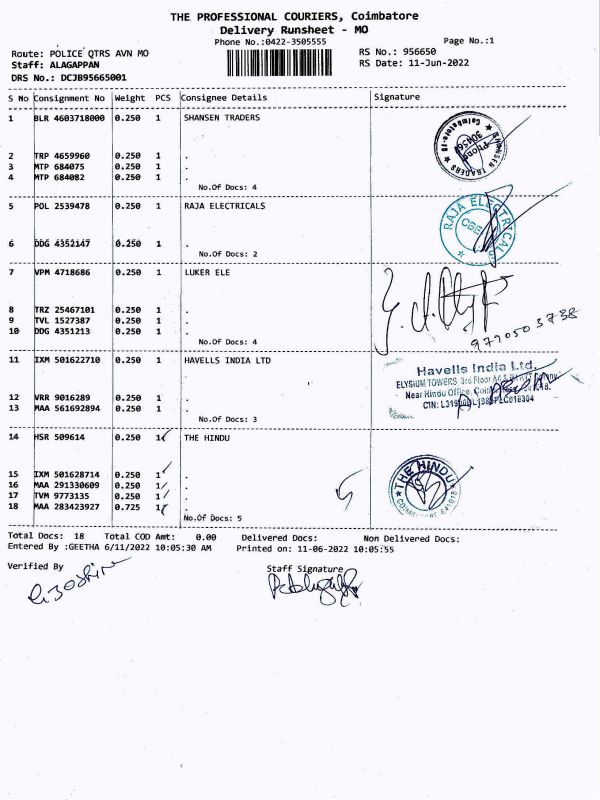 THE PROFESSIONAL COURIERS, Coimbatore
Delivery Runsheet - MO
Phone No.:0422-3505555
Page No.:1
Route: POLICE QTRS AVN MO
RS No.: 956650
Staff: ALAGAPPAN
RS Date: 11-Jun-2022
DRS No.: DCJB95665001
S No Consignment No Weight PCS Consignee Details Signature
1 BLR 4603718000 0.250 1 SHANSEN TRADERS
2 TRP 4659960 0.250 1 .
3 MTP 684075 0.250 1 .
4 MTP 684082 0.250 1 .
No.Of Docs: 4
5 POL 2539478 0.250 1 RAJA ELECTRICALS
RAJA ELECTRICALS
CBE
6 DDG 4352147 0.250 1 .
No.Of Docs: 2
7 VPM 4718686 0.250 1 LUKER ELE
8 TRZ 25467101 0.250 1 .
9 TVL 1527387 0.250 1 .
10 DDG 4351213 0.250 1 .
No.Of Docs: 4
11 IXM 501622710 0.250 1 HAVELLS INDIA LTD
Havells India Ltd.
ELYSIUM TOWERS 3rd Floor
Near Hindu Office,
12 VRR 9016289 0.250 1 .
13 MAA 561692894 0.250 1 .
No.Of Docs: 3
14 HSR 509614 0.250 1 THE HINDU
THE HINDU
15 IXM 501628714 0.250 1 .
16 MAA 291330609 0.250 1 .
17 TVM 9773135 0.250 1 .
18 MAA 283423927 0.725 1 .
No.Of Docs: 5
Total Docs: 18 Total COD Amt: 0.00 Delivered Docs: Non Delivered Docs:
Entered By :GEETHA 6/11/2022 10:05:30 AM Printed on: 11-06-2022 10:05:55
Verified By
Staff Signature